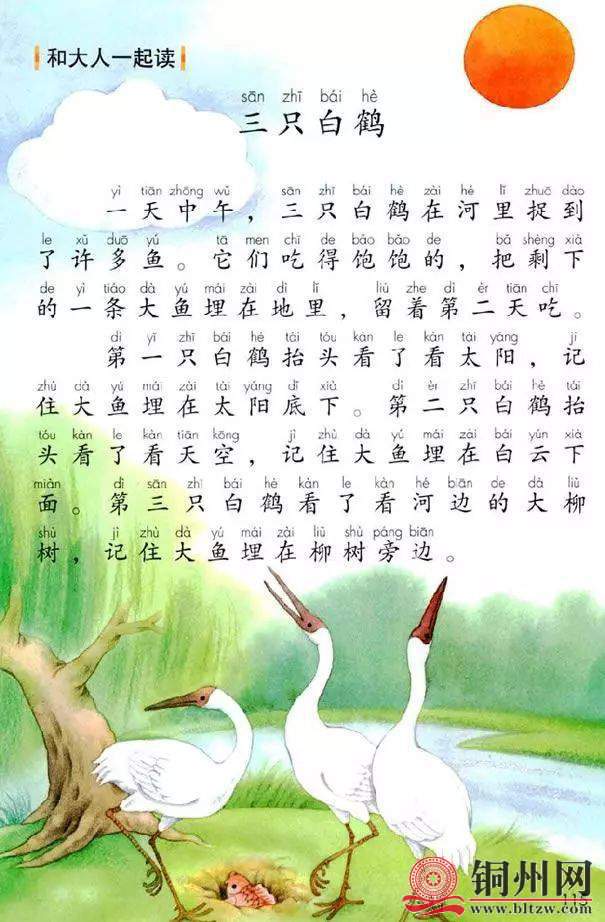 和大人一起读
sān zhī bái hè
三只白鹤
yì tiān zhōng wǔ sān zhī bái hè zài hé lǐ zhuō dào
一天中午，三只白鹤在河里捉到
le xǔ duō yú tā men chī de bǎo bǎo de bǎ shèng xià
了许多鱼。它们吃得饱饱的，把剩下
de yì tiáo dà yú mái zài dì lǐ liú zhe dì èr tiān chī
的一条大鱼埋在地里，留着第二天吃。
dì yī zhī bái hè tái tóu kàn le kàn tài yáng jì
第一只白鹤抬头看了看太阳，记
zhù dà yú mái zài tài yáng dǐ xià dì èr zhī bái hè tái
住大鱼埋在太阳底下。第二只白鹤抬
tóu kàn le kàn tiān kōng jì zhù dà yú mái zài bái yún xià
头看了看天空，记住大鱼埋在白云下
miàn dì sān zhī bái hè kàn le kàn hé biān de dà liǔ
面。第三只白鹤看了看河边的大柳
shù jì zhù dà yú mái zài liǔ shù páng biān
树，记住大鱼埋在柳树旁边。
铜州网
www.bltzw.com